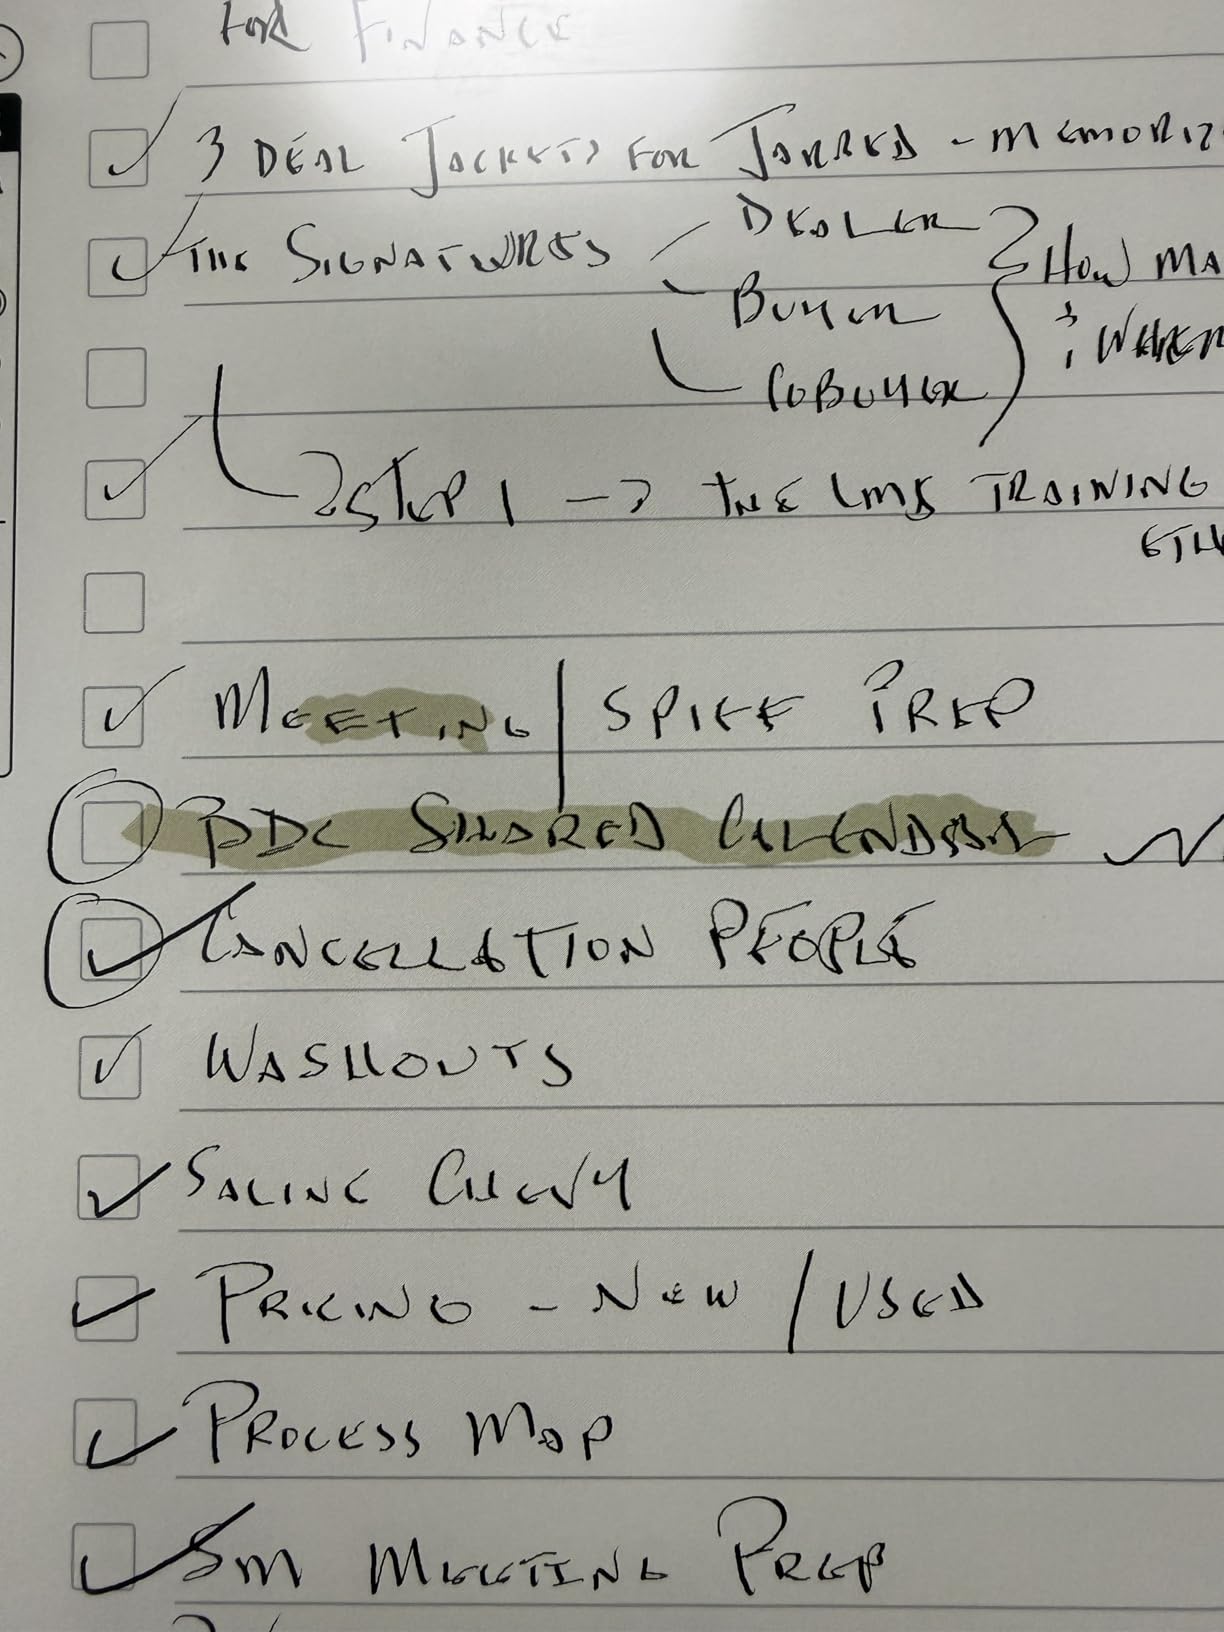 FOR FINANCE
3 DEAL JACKETS FOR JARRED - MEMORIZ
THE SIGNATURES
DEALER
BUYER
COBUYER
HOW MA
& WHERE
STEP 1 -> THE LMS TRAINING
MEETING / SPIFF PREP
BDC SHARED CALENDAR
CANCELLATION PEOPLE
WASHOUTS
SALINE CHEVY
PRICING - NEW / USED
PROCESS MAP
SM MEETING PREP